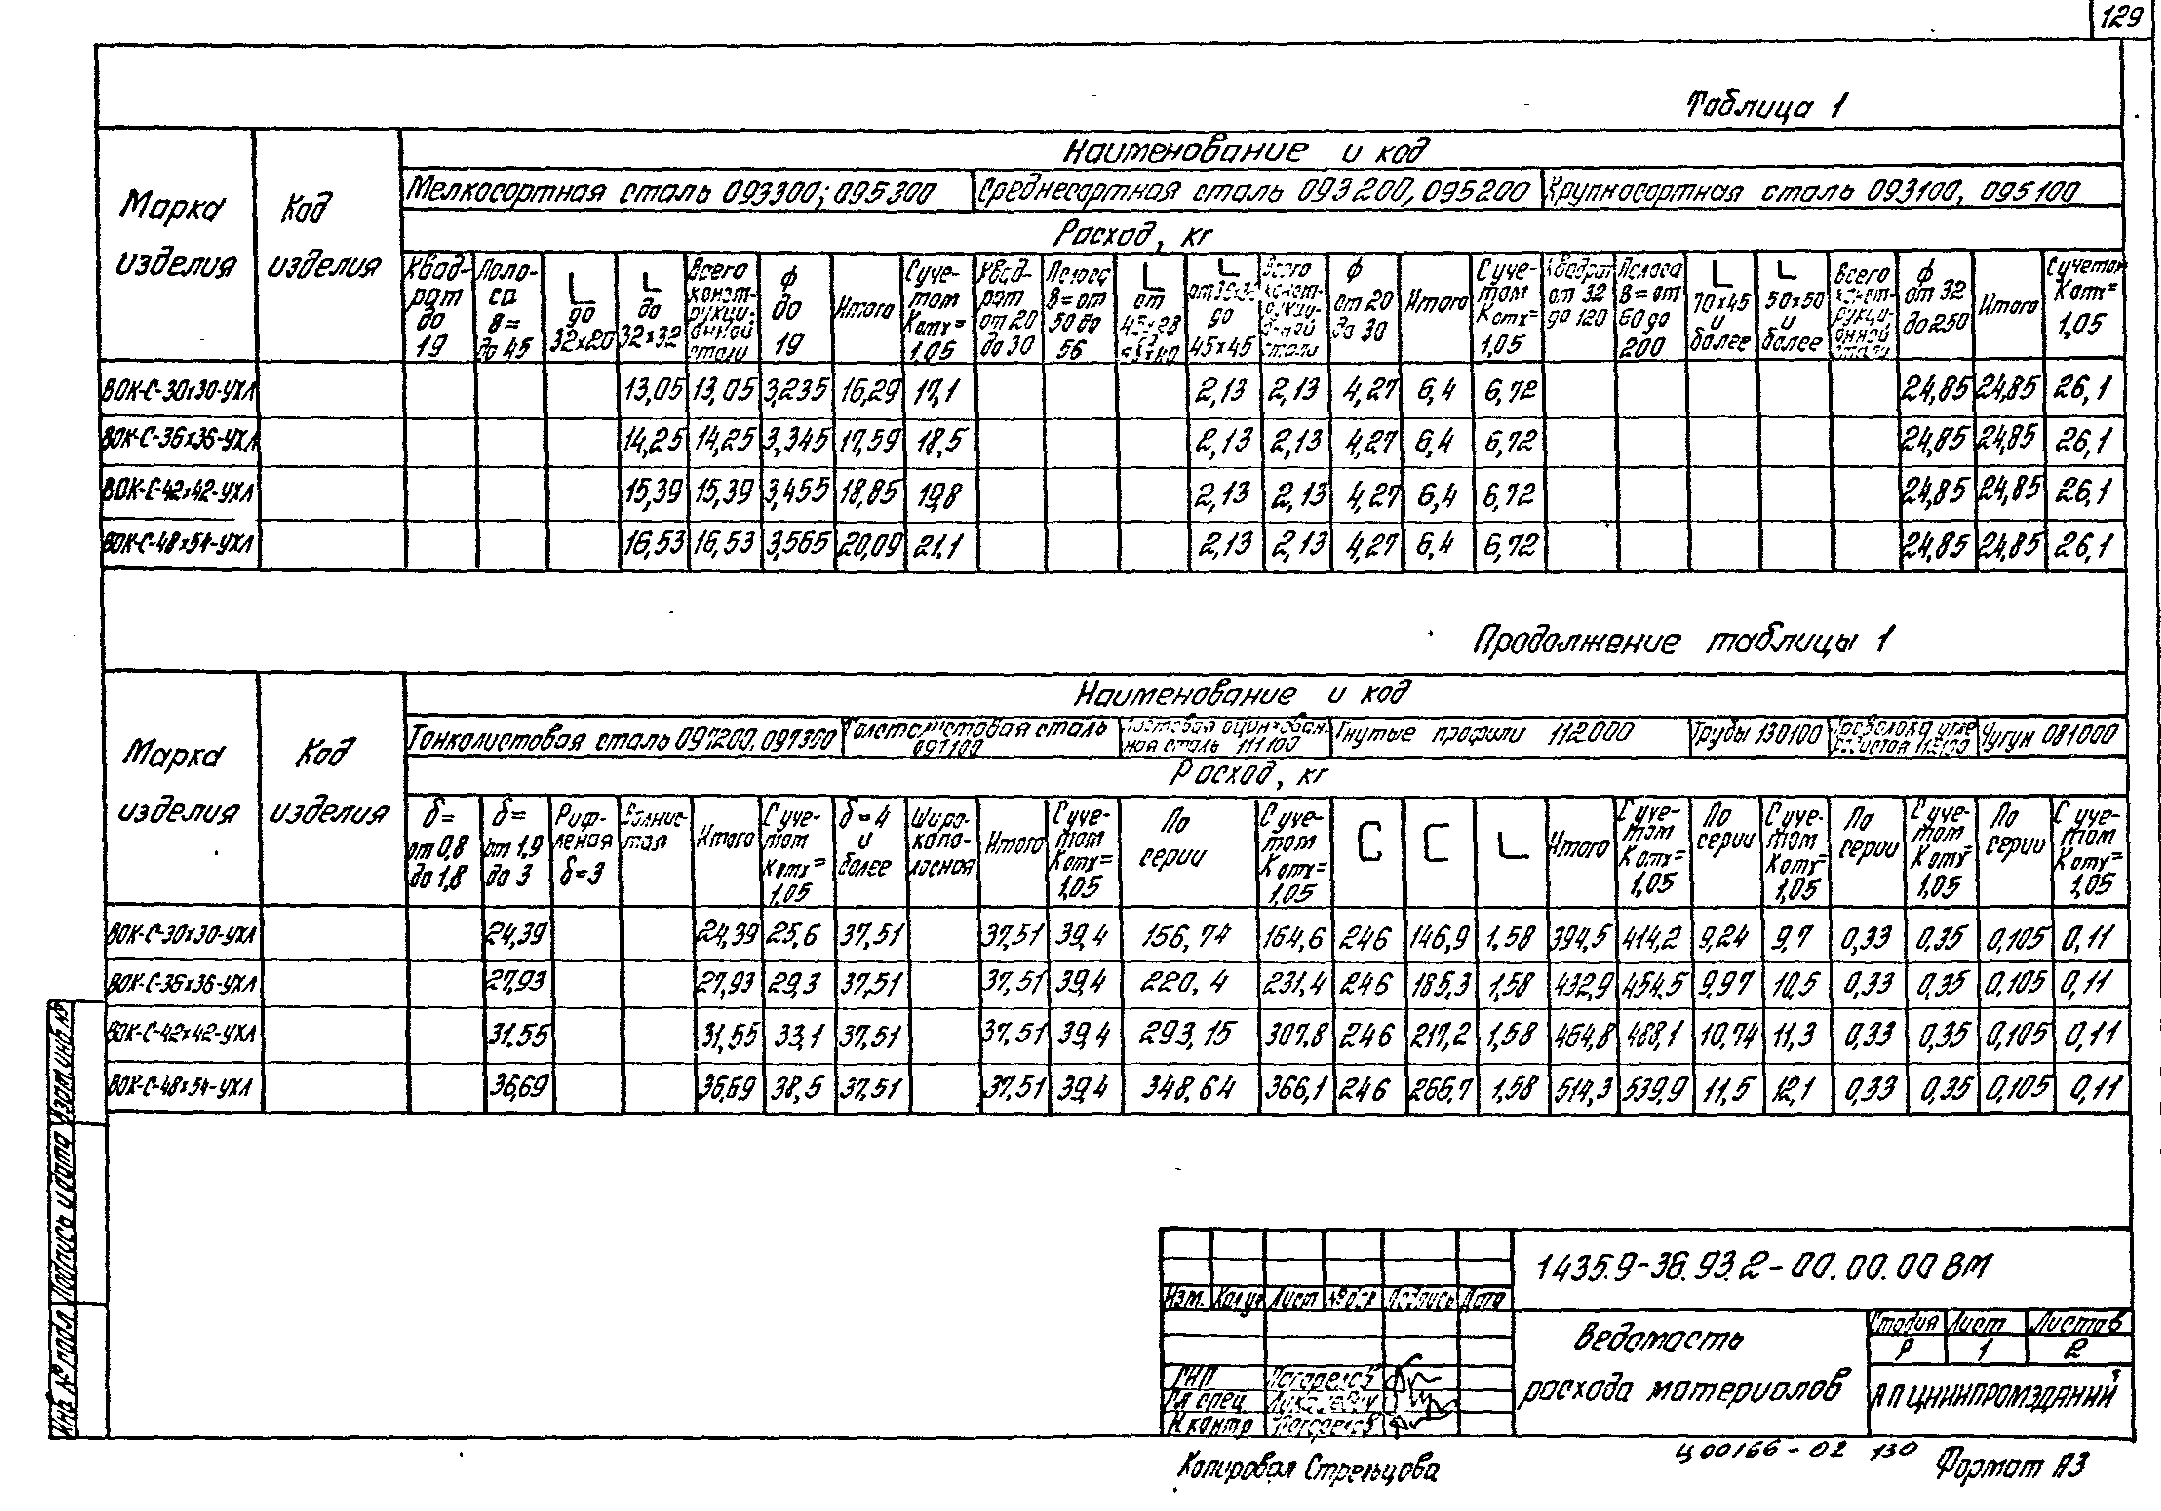 129
Таблица 1
Марка изделия
Код изделия
Наименование и код
Мелкосортная сталь 093300; 095300 Среднесортная сталь 093200, 095200 Крупносортная сталь 093100, 095100
Расход, кг
Квадрат до 19 Полоса В= до 45 L до 32х20 L до 32х32 Всего конструкционной стали ф до 19 Итого С учетом Котх= 1,05 Квадрат от 20 до 30 Полоса В= от 50 до 56 L от 45х28 L до 45х45 Всего ф от 20 до 30 Итого С учетом Котх= 1,05 Квадрат от 32 до 120 Полоса В= от 60 до 200 L 70х45 и более L 50х50 и более Всего конструкционной стали ф от 32 до 250 Итого С учетом Котх= 1,05
ВОК-С-30х30-УХЛ 13,05 13,05 3,235 16,29 17,1 2,13 2,13 4,27 6,4 6,72 24,85 24,85 26,1
ВОК-С-36х36-УХЛ 14,25 14,25 3,345 17,59 18,5 2,13 2,13 4,27 6,4 6,72 24,85 24,85 26,1
ВОК-С-42х42-УХЛ 15,39 15,39 3,455 18,85 19,8 2,13 2,13 4,27 6,4 6,72 24,85 24,85 26,1
ВОК-С-48х54-УХЛ 16,53 16,53 3,565 20,09 21,1 2,13 2,13 4,27 6,4 6,72 24,85 24,85 26,1
Продолжение таблицы 1
Марка изделия
Код изделия
Наименование и код
Тонколистовая сталь 097200, 097300 Толстолистовая сталь 097100 Листовая оцинкованная сталь 111100 Гнутые профили 112000 Трубы 130100 Проволока Чугун 081000
Расход, кг
δ= от 0,8 до 1,8 δ= от 1,9 до 3 Рифленая δ=3 Волнистая Итого С учетом Котх= 1,05 δ=4 и более Широкополосная Итого С учетом Котх= 1,05 По серии С учетом Котх= 1,05 С С L Итого С учетом Котх= 1,05 По серии С учетом Котх= 1,05 По серии С учетом Котх= 1,05 По серии С учетом Котх= 1,05
ВОК-С-30х30-УХЛ 24,39 24,39 25,6 37,51 37,51 39,4 156,74 164,6 246 146,9 1,58 394,5 414,2 9,24 9,7 0,33 0,35 0,105 0,11
ВОК-С-36х36-УХЛ 27,93 27,93 29,3 37,51 37,51 39,4 220,4 231,4 246 185,3 1,58 432,9 454,5 9,97 10,5 0,33 0,35 0,105 0,11
ВОК-С-42х42-УХЛ 31,55 31,55 33,1 37,51 37,51 39,4 293,15 307,8 246 217,2 1,58 464,8 488,1 10,74 11,3 0,33 0,35 0,105 0,11
ВОК-С-48х54-УХЛ 36,69 36,69 38,5 37,51 37,51 39,4 348,64 366,1 246 266,7 1,58 514,3 539,9 11,5 12,1 0,33 0,35 0,105 0,11
Инв. № подл. Подпись и дата Взам.инв.№
1435.9-36.93.2-00.00.00 ВМ
Изм. Кол.уч Лист №док Подпись Дата
Ведомость
расхода материалов
Стадия Лист Листов
Р 1 2
ГИП
Гл спец
Н контр
АП ЦНИИПРОМЗДАНИЙ
Ц00166-02 130
Копировал Стрельцова
Формат А3